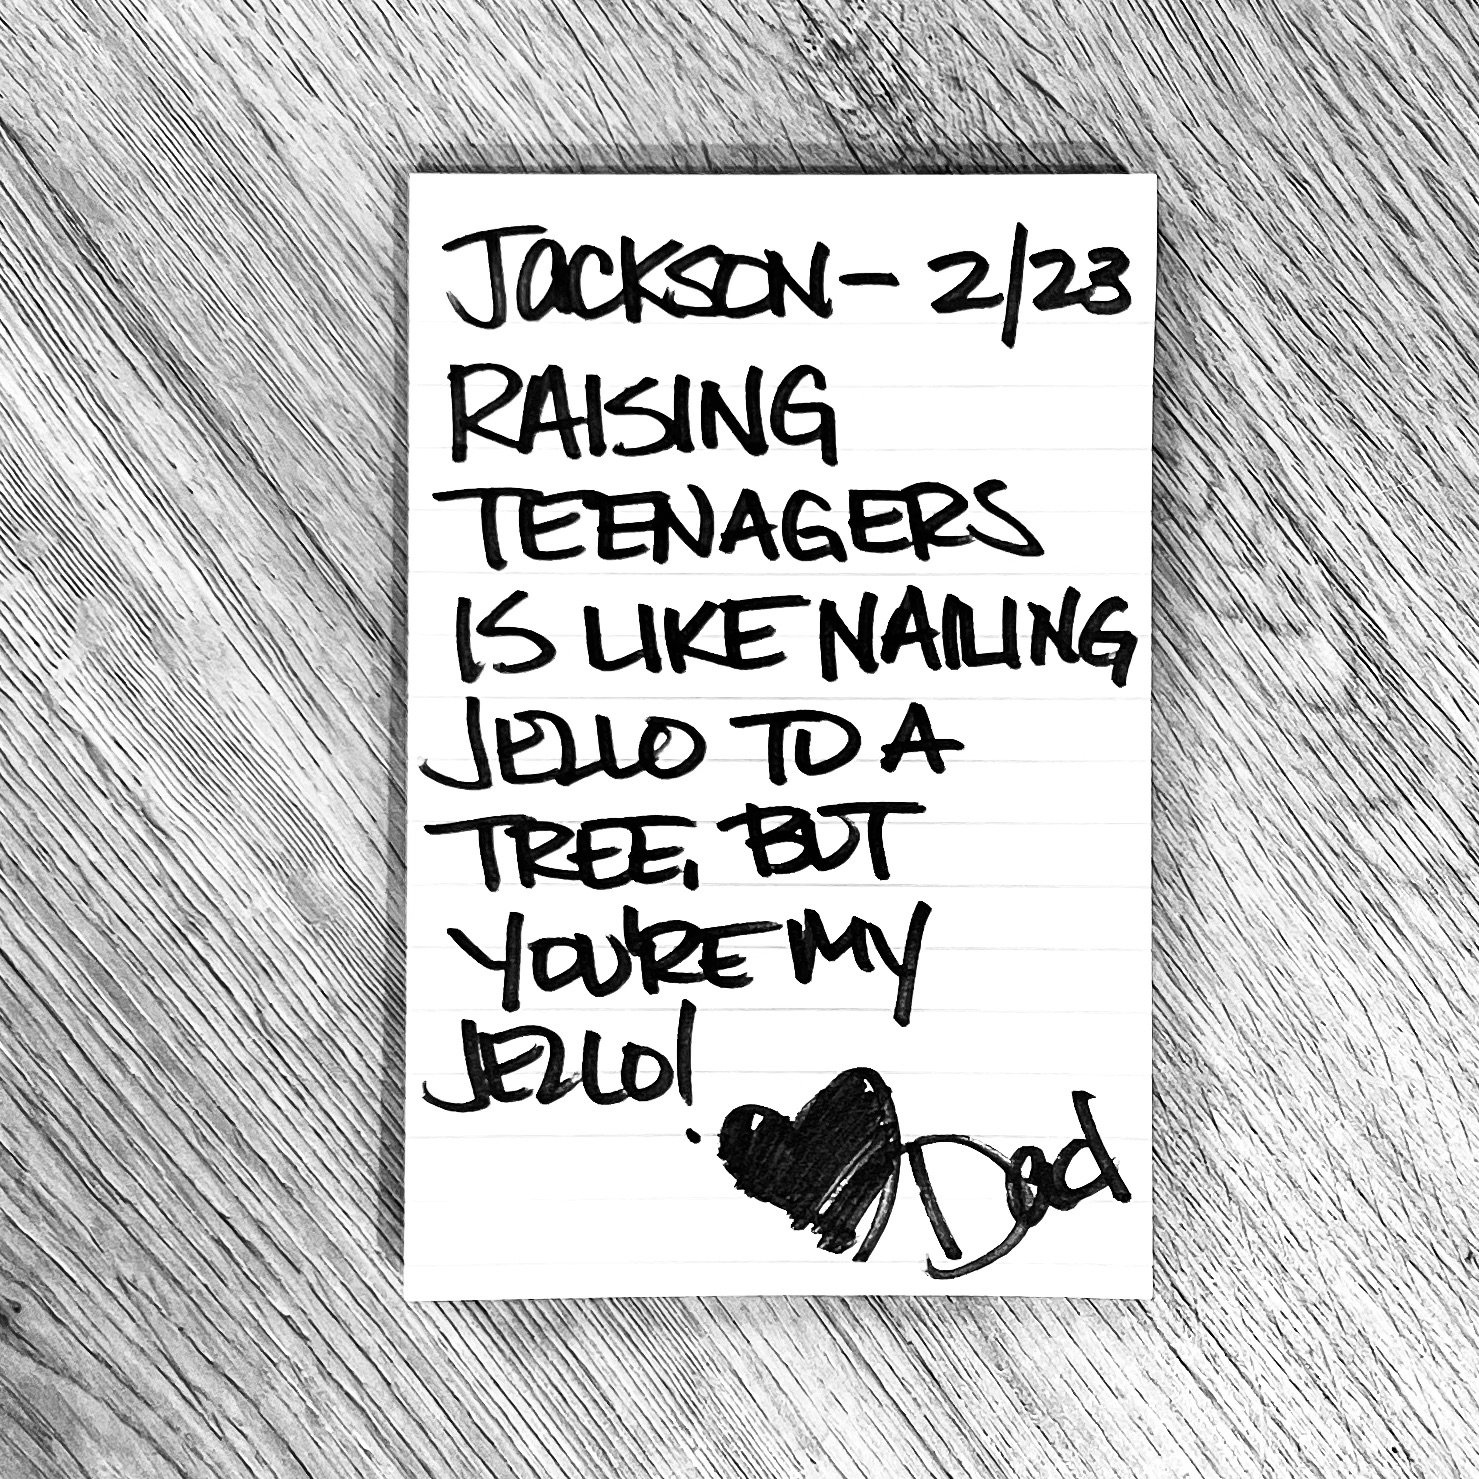 JACKSON - 2/23
RAISING
TEENAGERS
IS LIKE NAILING
JELLO TO A
TREE, BUT
YOU'RE MY
JELLO!
Dad